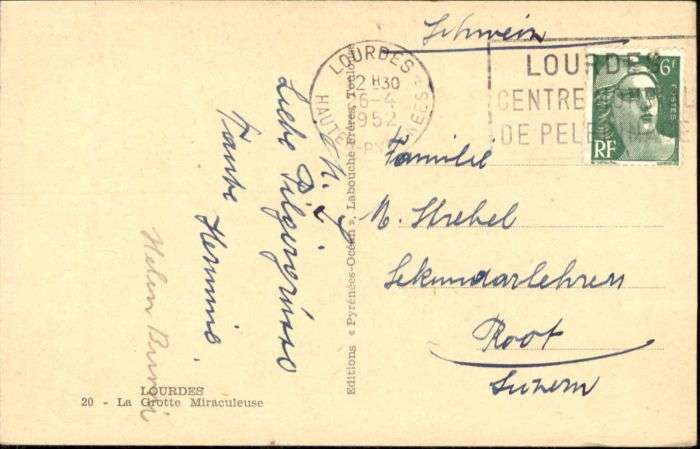 Schweiz
LOURDES
12 H30
6-4
1952
HAUTES-PYRÉNÉES
LOURDES
CENTRE
DE PELE
6F
POSTES
RF
Familie
N. Strebel
Sekundarlehrer
Root
Luzern
Liebe Pilgergrüsse
Tante Hermine
Helen
Editions « Pyrénées-Océan », Labouche Frères, Toulouse
LOURDES
20 - La Grotte Miraculeuse